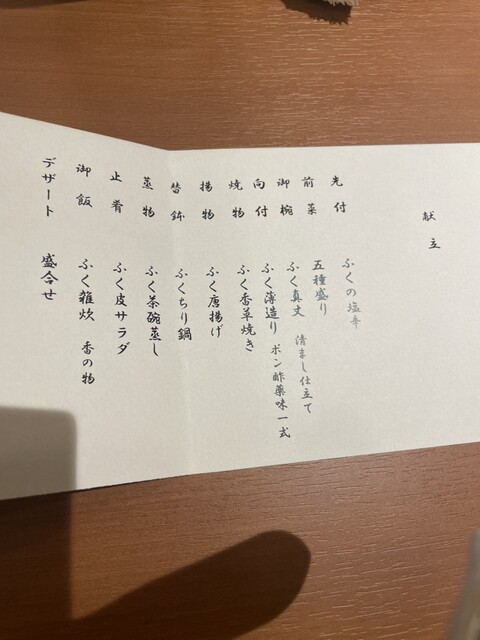 献立
先付 ふくの塩辛
前菜 五種盛り
御椀 ふく真丈 清まし仕立て
向付 ふく薄造り ポン酢薬味一式
焼物 ふく香草焼き
揚物 ふく唐揚げ
替鉢 ふくちり鍋
蒸物 ふく茶碗蒸し
止肴 ふく皮サラダ
御飯 ふく雑炊 香の物
デザート 盛合せ